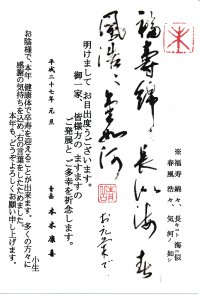 福壽綿々長似海春
風浩々氣如河
お元気で
明けまして お目出度うございます。
御一家、皆様方の ますますの
ご発展と ご多幸を祈念します。
平成二十七年 元旦
本木康喜
小生
お陰様で、本年 健康体で卒寿を迎えることが出来ます。多くの方々に
感謝の気持ちを込め、右の言葉をしたためました。
本年も、どうぞよろしくお願い申し上げます。
※福寿 綿々、長キコト 海ニ似
春風 浩々、気 河ノ如シ